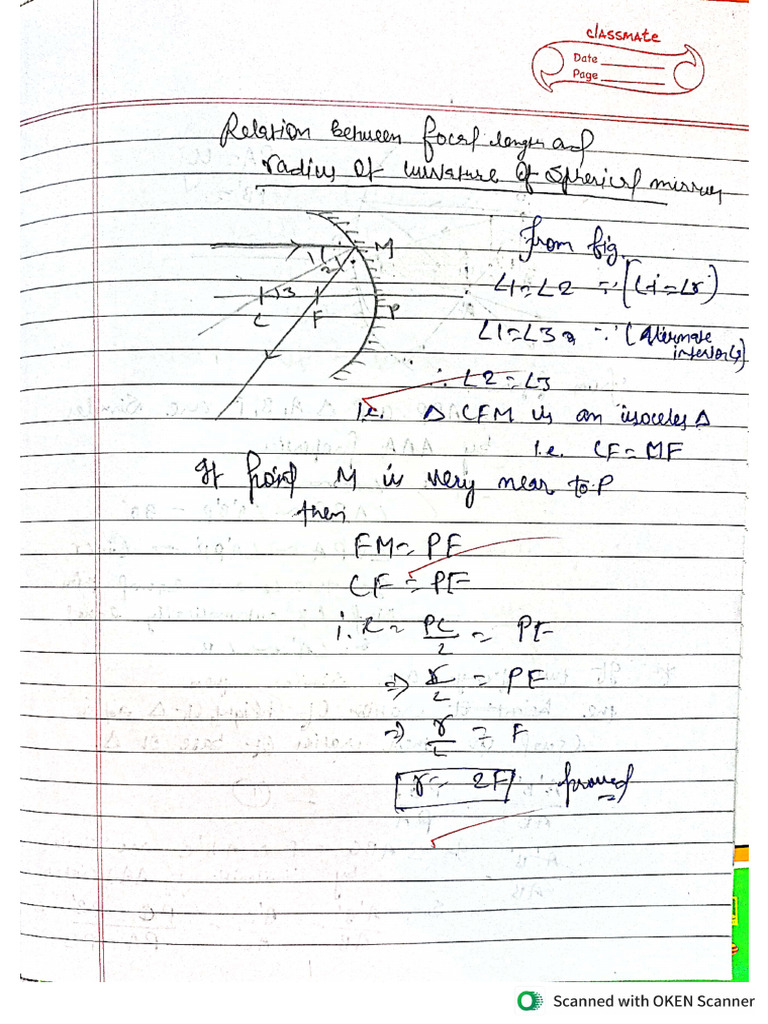 classmate
Date
Page
Relation between focal length and
radius of curvature of spherical mirror
M
1
2
3
C F P
From fig.
∠1=∠2 ∵ [∠i=∠r)
∠1=∠3 ∵ (alternate
interior ∠s)
∴ ∠2=∠3
i.e. Δ CFM is an isoceles Δ
i.e. CF=MF
If point M is very near to P
then
FM= PF
CF = PF
i.e = PC/2 = PF
=> r/2 = PF
=> r/2 = F
r= 2F proved
Scanned with OKEN Scanner